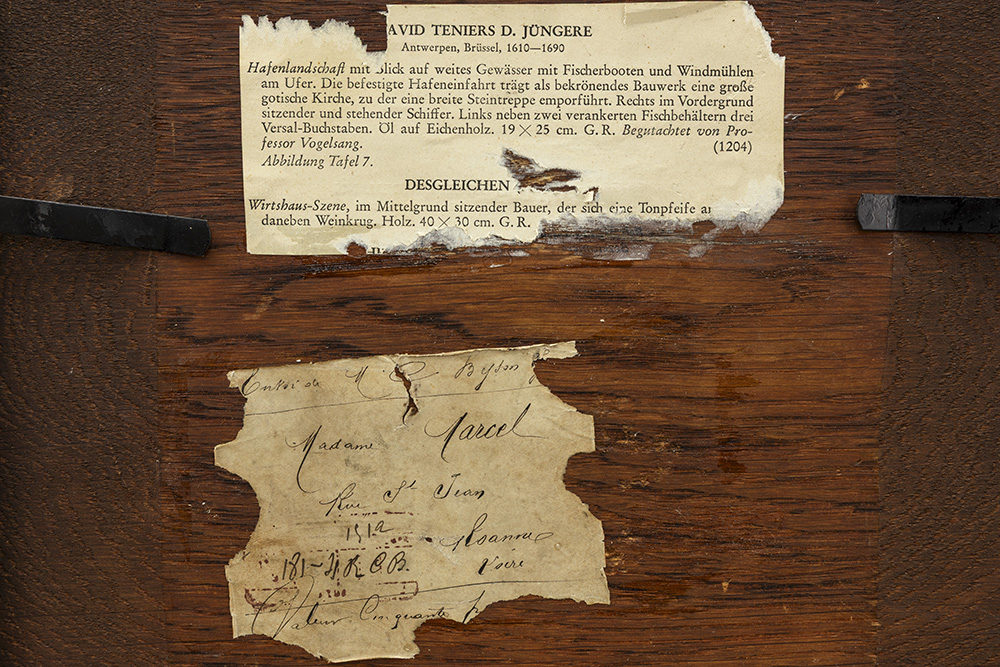 AVID TENIERS D. JÜNGERE
Antwerpen, Brüssel, 1610—1690
Hafenlandschaft mit Blick auf weites Gewässer mit Fischerbooten und Windmühlen
am Ufer. Die befestigte Hafeneinfahrt trägt als bekrönendes Bauwerk eine große
gotische Kirche, zu der eine breite Steintreppe emporführt. Rechts im Vordergrund
sitzender und stehender Schiffer. Links neben zwei verankerten Fischbehältern drei
Versal-Buchstaben. Öl auf Eichenholz. 19 × 25 cm. G. R. Begutachtet von Pro-
fessor Vogelsang. (1204)
Abbildung Tafel 7.
DESGLEICHEN
Wirtshaus-Szene, im Mittelgrund sitzender Bauer, der sich eine Tonpfeife
daneben Weinkrug. Holz. 40 × 30 cm. G. R.
de M.
Madame Marcel
Rue St Jean
Roanne
Loire
181-4 R.C.B.
Valeur Cinquante f